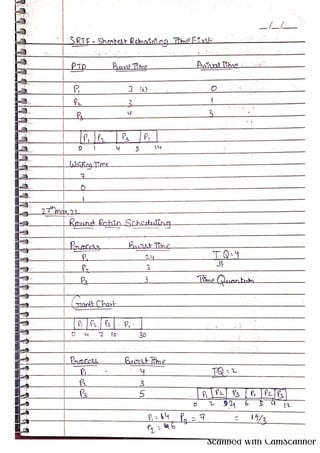 SRTF - Shortest Remaining Time First
PID Burst Time Arrival Time
P1 7 (6) 0
P2 3 1
P3 4 3
P1 P2 P3 P1
0 1 4 8 14
Waiting Time
7
0
1
27th Mar, 22
Round Robin Scheduling
Process Burst Time
P1 24 T Q = 4
P2 3
P3 3 Time Quantum
Gantt Chart
P1 P2 P3 P1
0 4 7 10 30
Process Burst Time
P1 4 TQ = 2
P2 3
P3 5 P1 P2 P3 P1 P2 P3
0 2 4 6 8 9 12
P1 = 64 P3 = 7 = 17/3
Scanned with CamScanner